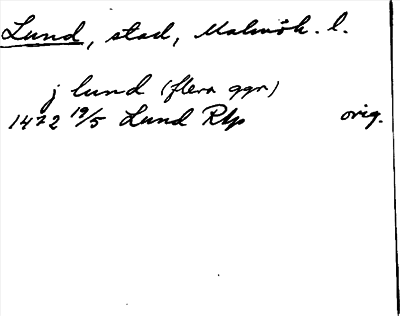 Lund, stad, Malmöh. l.
j lund (flera ggr)
1422 19/5 Lund Rap orig.